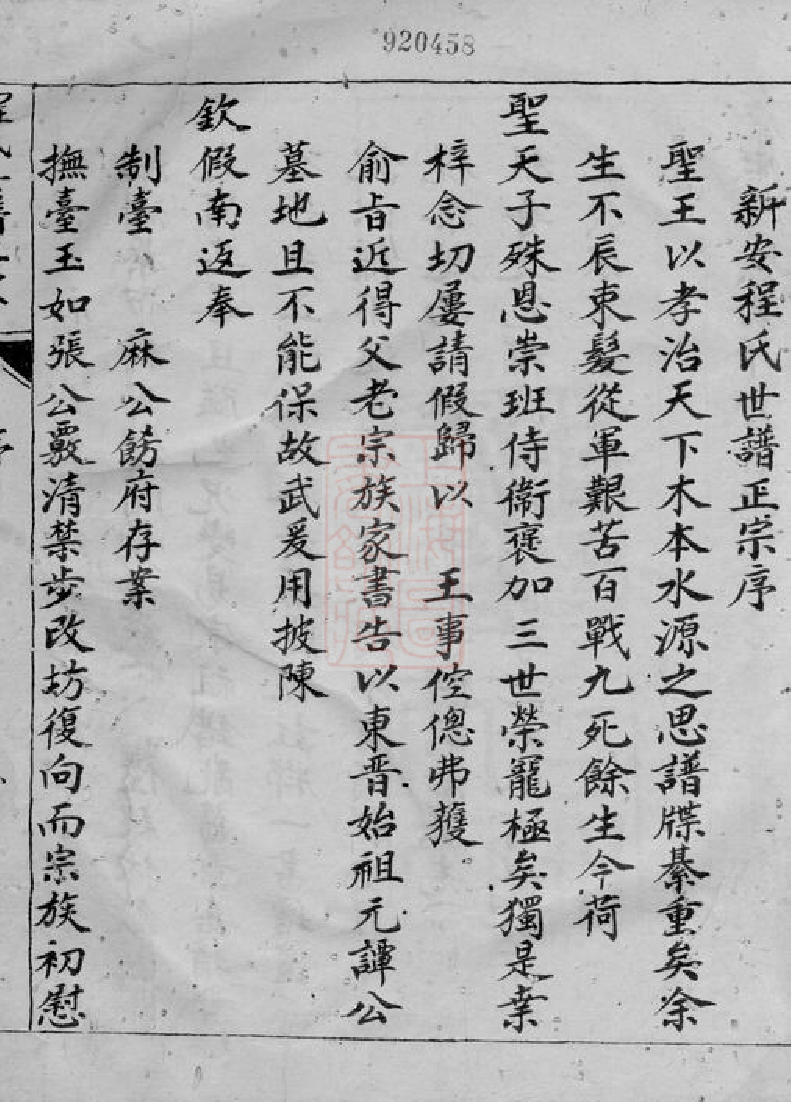 920458
新安程氏世譜正宗序
聖王以孝治天下木本水源之思譜牒綦重矣余
生不辰束髮從軍艱苦百戰九死餘生今荷
聖天子殊恩崇班侍衛褒加三世榮寵極矣獨是桒
梓念切屢請假歸以 王事倥傯弗獲
俞旨近得父老宗族家書告以東晋始祖元譚公
墓地且不能保故武爰用披陳
欽假南返奉
制臺 麻公餝府存案
撫臺玉如張公覈清禁步改坊復向而宗族初慰